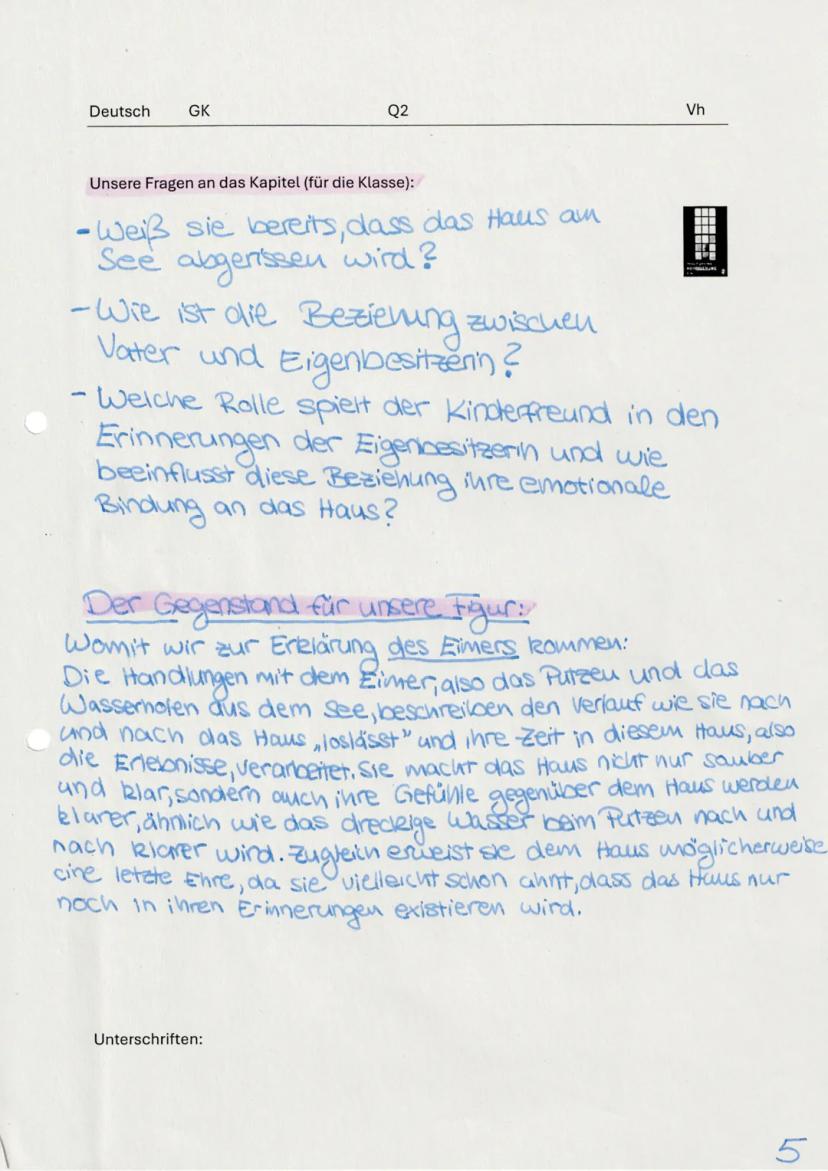 Deutsch GK Q2 Vh
Unsere Fragen an das Kapitel (für die Klasse):
- Weiß sie bereits, dass das Haus am
See abgerissen wird?
- Wie ist die Beziehung zwischen
Vater und Eigenbesitzerin?
- Welche Rolle spielt der Kinderfreund in den
Erinnerungen der Eigenbesitzerin und wie
beeinflusst diese Beziehung ihre emotionale
Bindung an das Haus?
Der Gegenstand für unsere Figur:
Womit wir zur Erklärung des Eimers kommen:
Die Handlungen mit dem Eimer, also das Putzen und das
Wasserholen aus dem See, beschreiben den Verlauf wie sie nach
und nach das Haus „loslässt" und ihre Zeit in diesem Haus, also
die Erlebnisse, verarbeitet. Sie macht das Haus nicht nur sauber
und klar, sondern auch ihre Gefühle gegenüber dem Haus werden
klarer, ähnlich wie das dreckige Wasser beim Putzen nach und
nach klarer wird. Zugleich erweist sie dem Haus möglicherweise
eine letzte Ehre, da sie vielleicht schon ahnt, dass das Haus nur
noch in ihren Erinnerungen existieren wird.
Unterschriften:
5